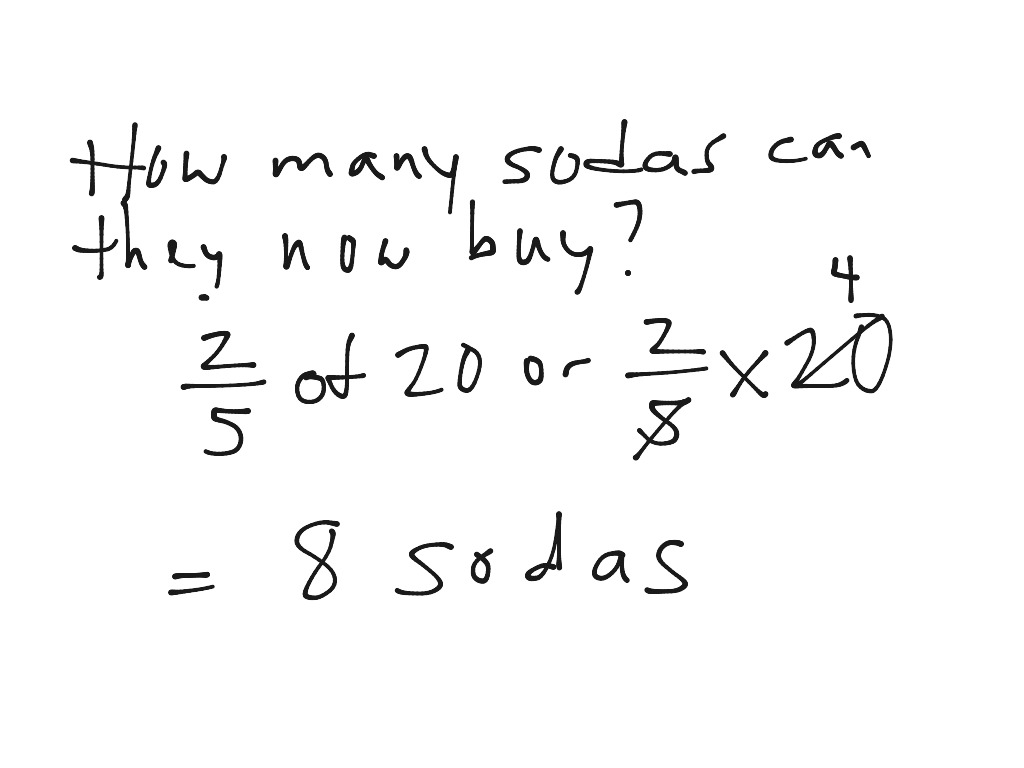 How many sodas can
they now buy?
2/5 of 20 or 2/5 x 20 4
= 8 sodas